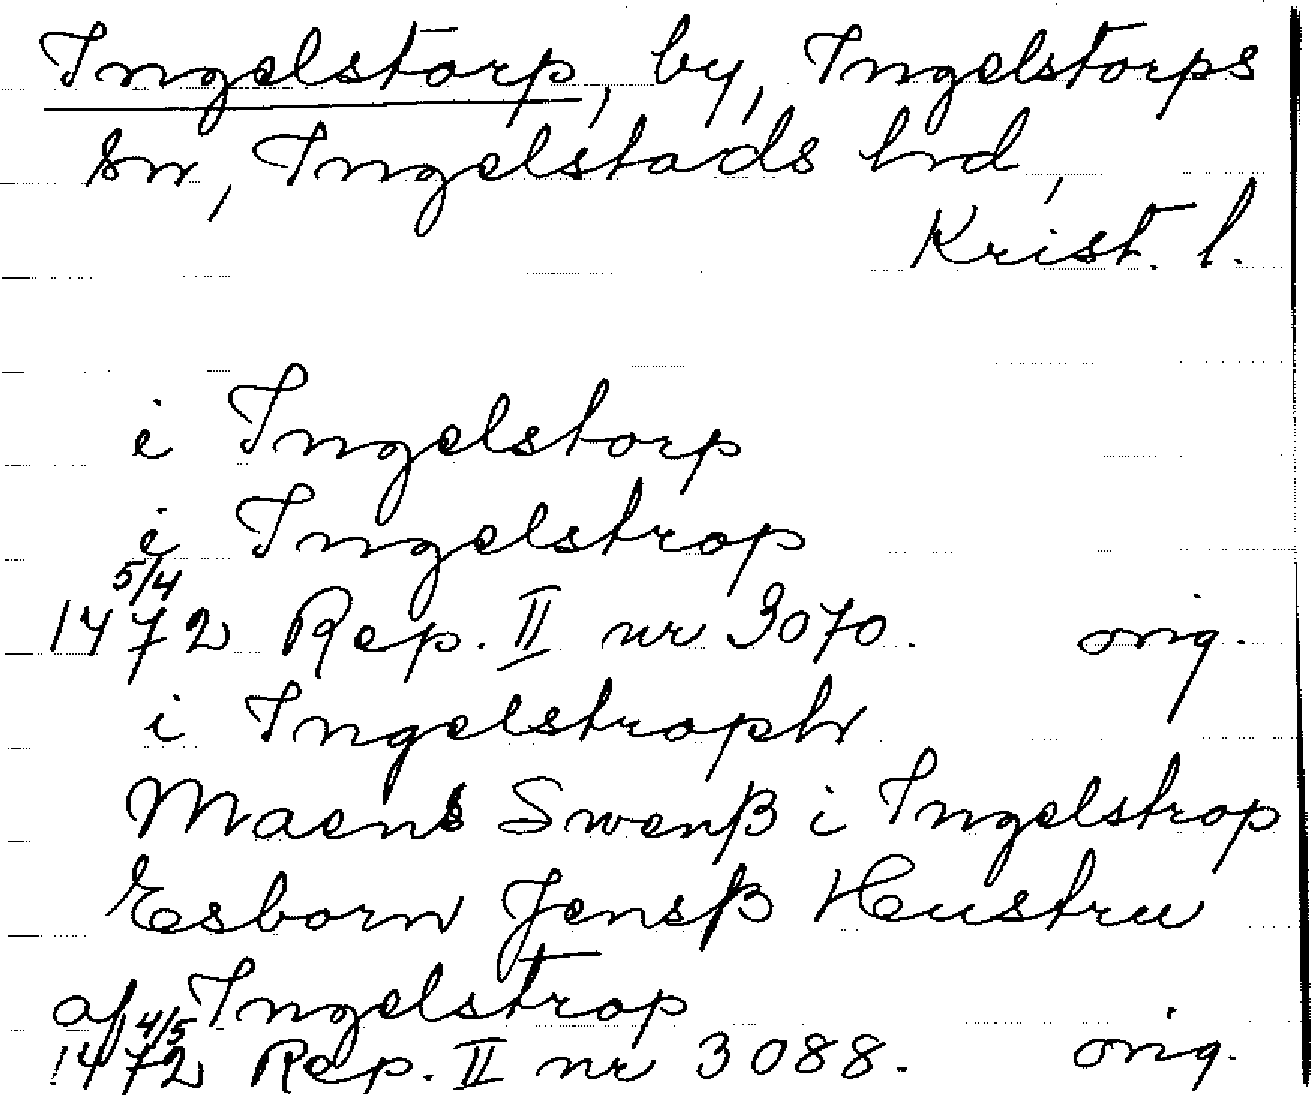 Ingelstorp, by, Ingelstorps
sn, Ingelstads hrd,
Krist. l.
i Ingelstorp
i Ingelstrop
5/4
1472 Rep. II nr 3070. orig.
i Ingelstroph
Maens Swenß i Ingelstrop
Esborn Jensß Hustru
af Ingelstrop
14/5
1472 Rep. II nr 3088. orig.